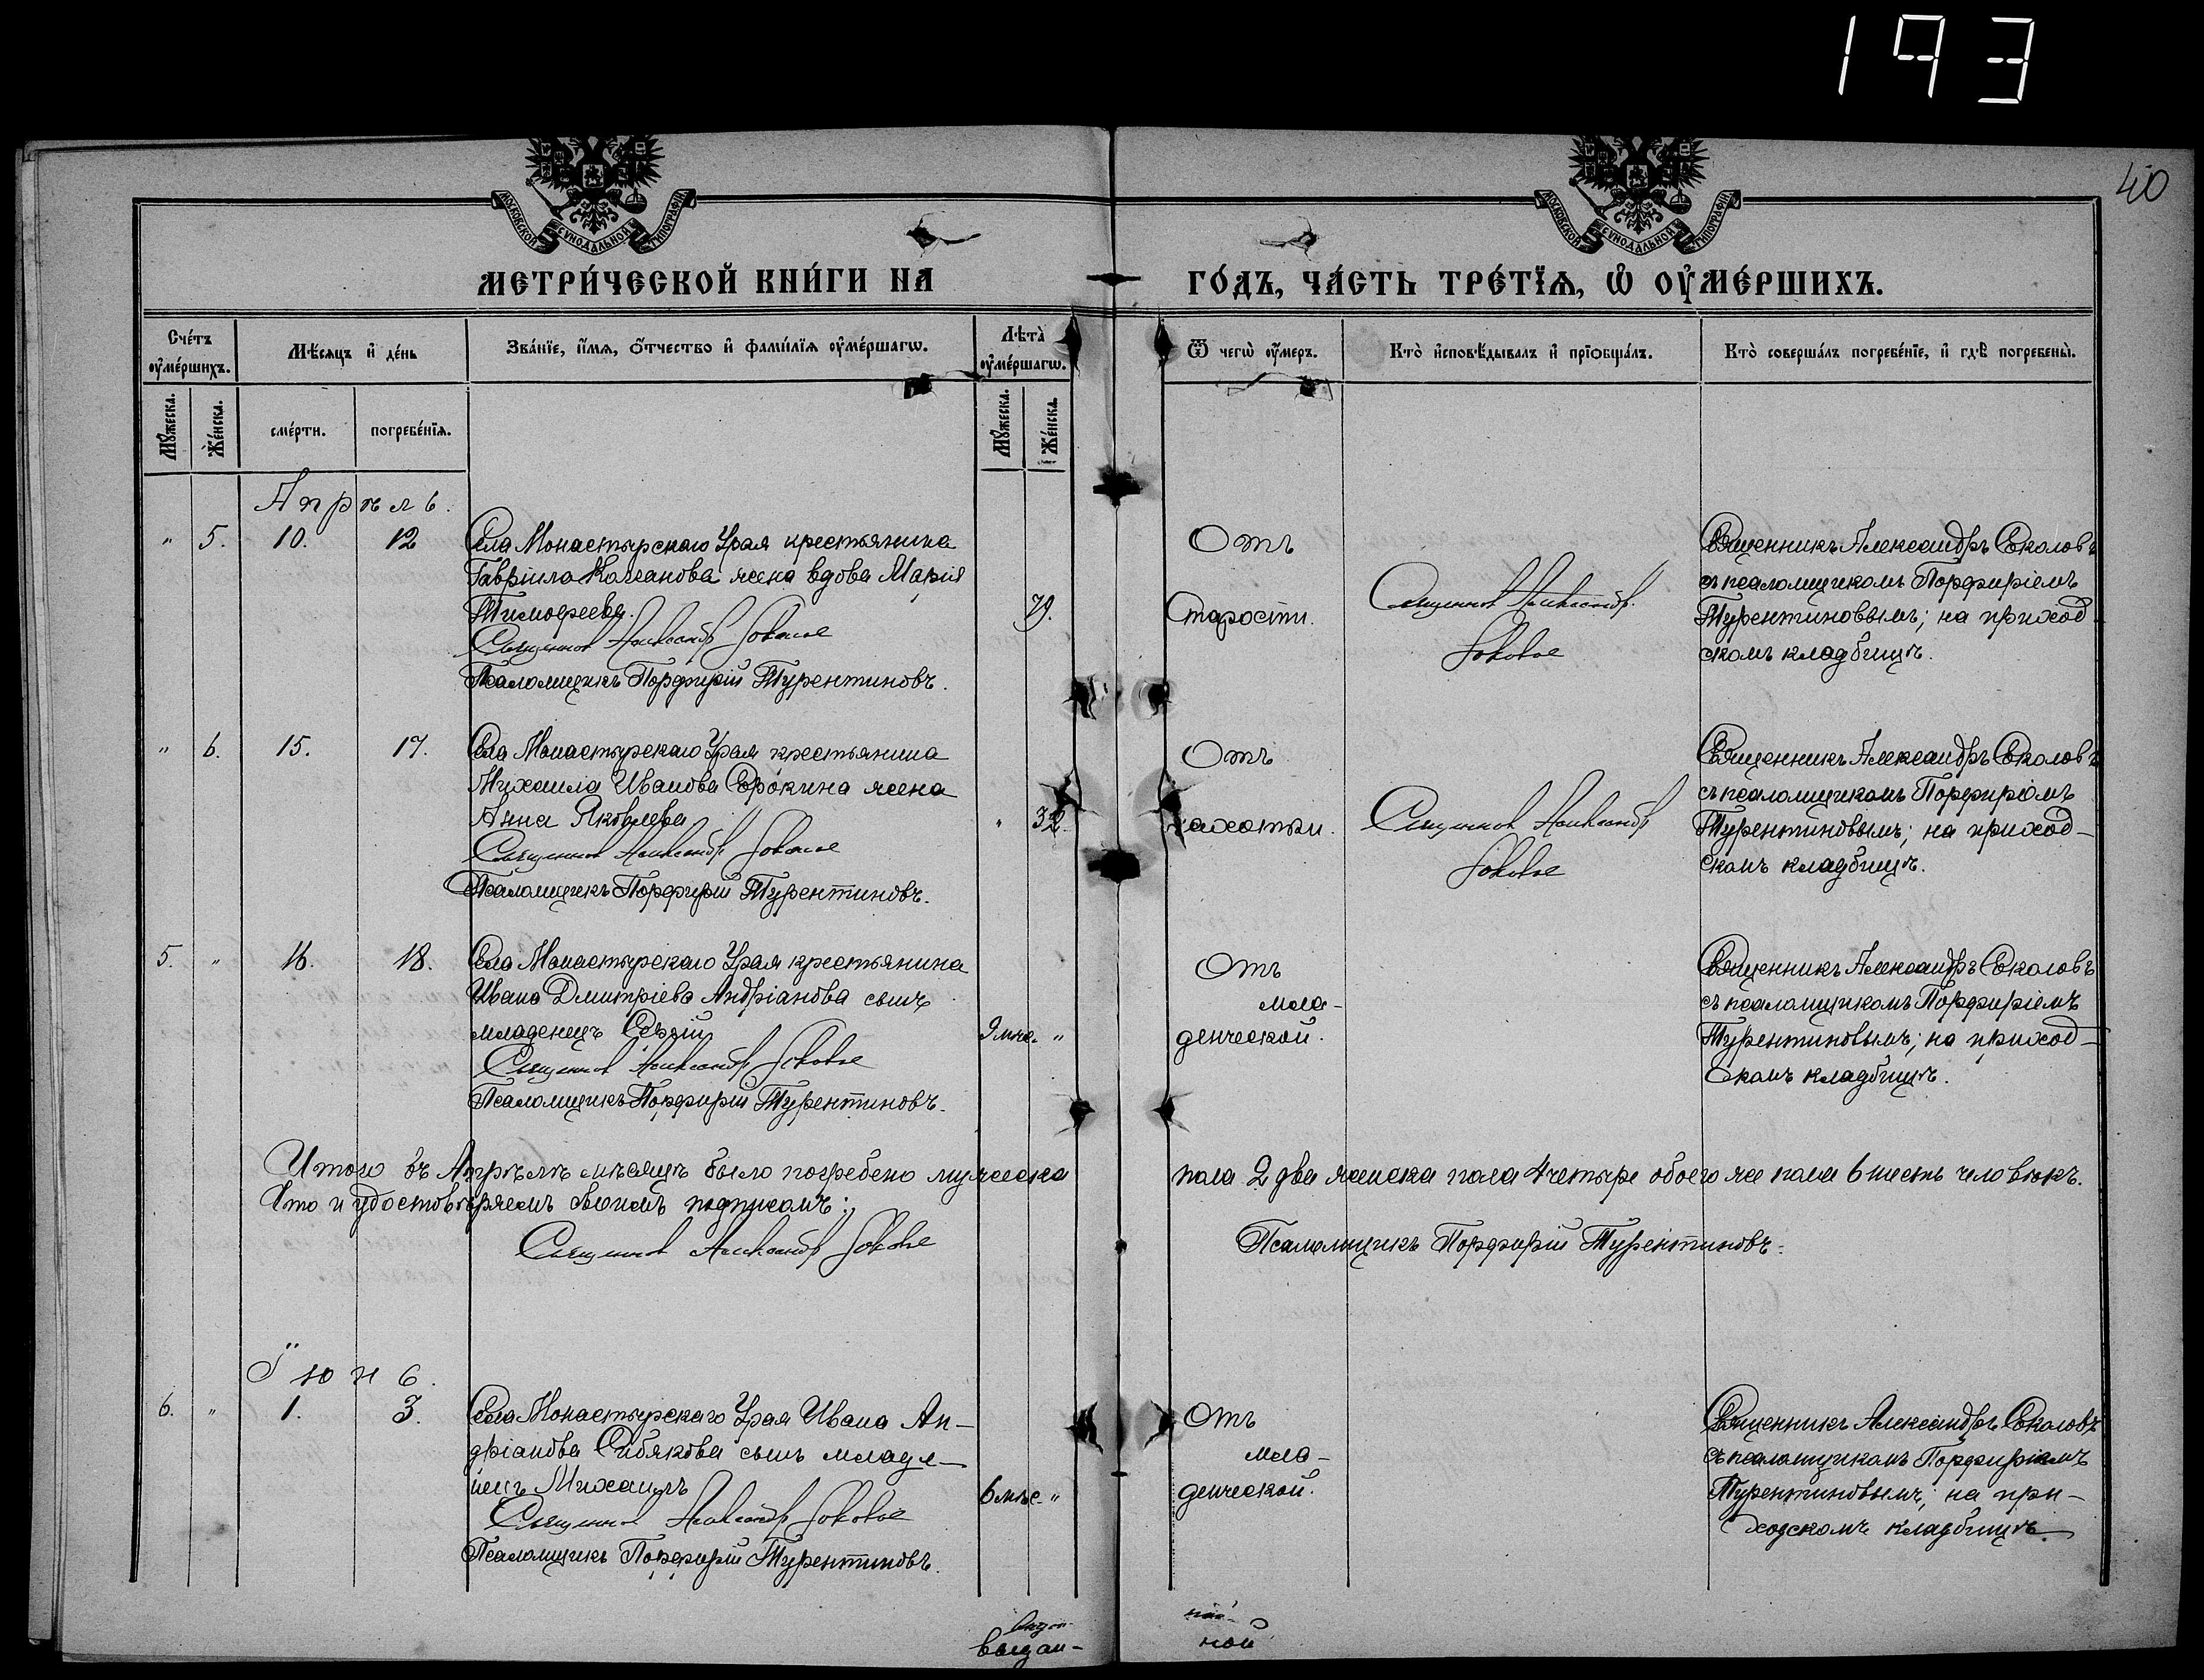 193
40
МОСКОВСКОЙ СѴНОДАЛЬНОЙ ТИПОГРАФІИ
МОСКОВСКОЙ СѴНОДАЛЬНОЙ ТИПОГРАФІИ
МЕТРИ́ЧЕСКОЙ КНИ́ГИ НА ГО́ДЪ, ЧА́СТЬ ТРЕ́ТЇѦ, Ѽ ОУ҆МЕ́РШИХЪ.
Сче́тъ оу҆ме́ршихъ.
Мѣ́сяцъ и҆ де́нь
Зва́нїе, и҆́мя, ѻ҆́тчество и҆ фами́лїя оу҆ме́ршагѡ.
Лѣта̀ оу҆ме́ршагѡ.
Ѿ чегѡ̀ оу҆́меръ.
Кто̀ и҆сповѣ́дывалъ и҆ прїѻбща́лъ.
Кто̀ соверша́лъ погребе́нїе, и҆ гдѣ̀ погребены̀.
Мꙋ́жеска.
Же́нска.
сме́рти.
погребе́нїя.
Мꙋ́жеска.
Же́нска.
Апрѣль.
" 5. 10. 12
Села Монастырскаго Урая крестьянина
Гавріила Колсанова жена вдова Марія
Тимофеева.
79.
Священник Александр Соколов
Псаломщикъ Порфирій Турентиновъ.
Отъ
Старости.
Священник Александр
Соколов
Священникъ Александръ Соколовъ
съ псаломщикомъ Порфиріемъ
Турентиновымъ; на приход-
скомъ кладбищѣ.
" 6. 15. 17.
Села Монастырскаго Урая крестьянина
Михаила Иванова Сорокина жена
Анна Яковлева
" 32.
Священник Александр Соколов
Псаломщикъ Порфирій Турентиновъ.
Отъ
чахотки.
Священник Александр
Соколов
Священникъ Александръ Соколовъ
съ псаломщикомъ Порфиріемъ
Турентиновымъ; на приход-
скомъ кладбищѣ.
5. " 16. 18.
Села Монастырскаго Урая крестьянина
Ивана Дмитріева Андріанова сынъ
младенецъ
9 мѣс. "
Священник Александр Соколов
Псаломщикъ Порфирій Турентиновъ.
Отъ
мла-
денческой.
Священникъ Александръ Соколовъ
съ псаломщикомъ Порфиріемъ
Турентиновымъ; на приход-
скомъ кладбищѣ.
Итого въ Апрѣлѣ мѣсяцѣ было погребено мужеска пола 2 два женска пола 4 четыре обоего же пола 6 шесть человѣкъ.
Что и удостовѣряемъ своимъ подписомъ:
Священник Александр Соколов
Псаломщикъ Порфирій Турентиновъ.
Іюнь.
6. " 1. 3.
Села Монастырскаго Урая Ивана Ан-
дріанова Сибякова сынъ младе-
нецъ Михаилъ
6 мѣс. "
Священник Александр Соколов
Псаломщикъ Порфирій Турентиновъ.
Отъ
мла-
денческой.
Священникъ Александръ Соколовъ
съ псаломщикомъ Порфиріемъ
Турентиновымъ; на при-
ходскомъ кладбищѣ
выдан-
ной